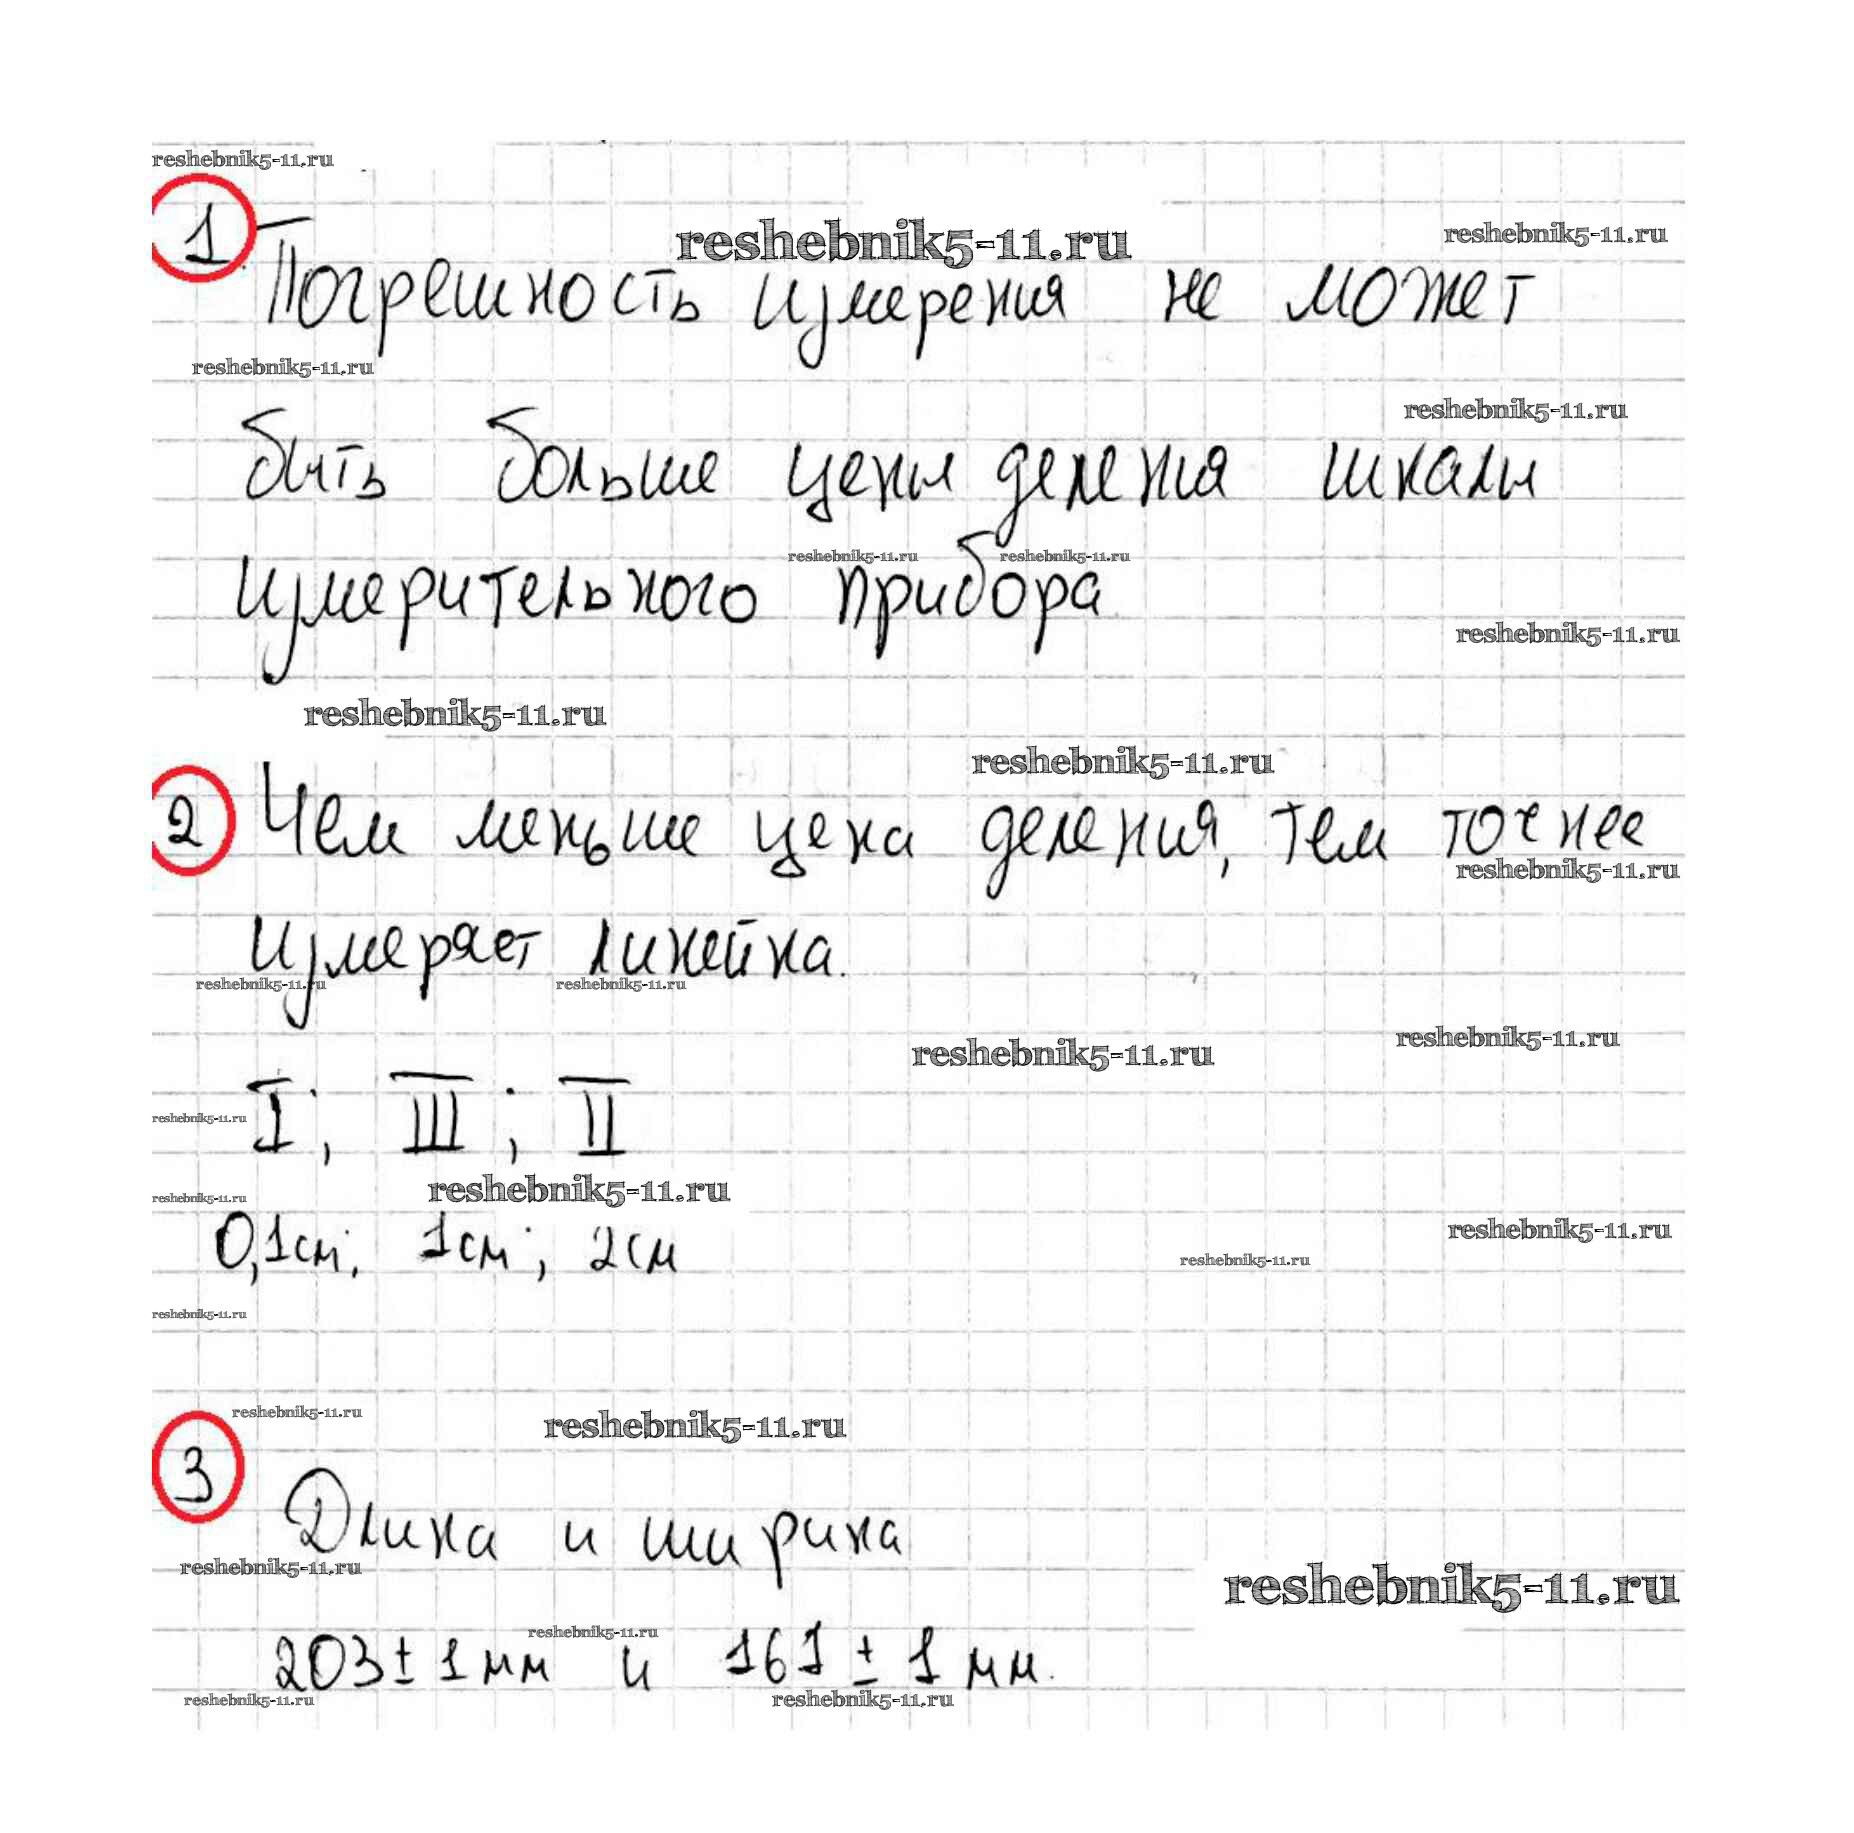 reshebnik5-11.ru
1. Погрешность измерения не может
reshebnik5-11.ru
reshebnik5-11.ru
reshebnik5-11.ru
reshebnik5-11.ru
быть больше цены деления шкалы
reshebnik5-11.ru reshebnik5-11.ru
измерительного прибора
reshebnik5-11.ru
reshebnik5-11.ru
reshebnik5-11.ru
2 Чем меньше цена деления, тем точнее
reshebnik5-11.ru
измеряет линейка.
reshebnik5-11.ru reshebnik5-11.ru
reshebnik5-11.ru
reshebnik5-11.ru
I; III; II
reshebnik5-11.ru
reshebnik5-11.ru
reshebnik5-11.ru
reshebnik5-11.ru
0,1см; 1см; 2см
reshebnik5-11.ru
reshebnik5-11.ru
reshebnik5-11.ru
reshebnik5-11.ru
3 Длина и ширина
reshebnik5-11.ru
reshebnik5-11.ru
reshebnik5-11.ru
203 ± 1 мм и 161 ± 1 мм.
reshebnik5-11.ru
reshebnik5-11.ru